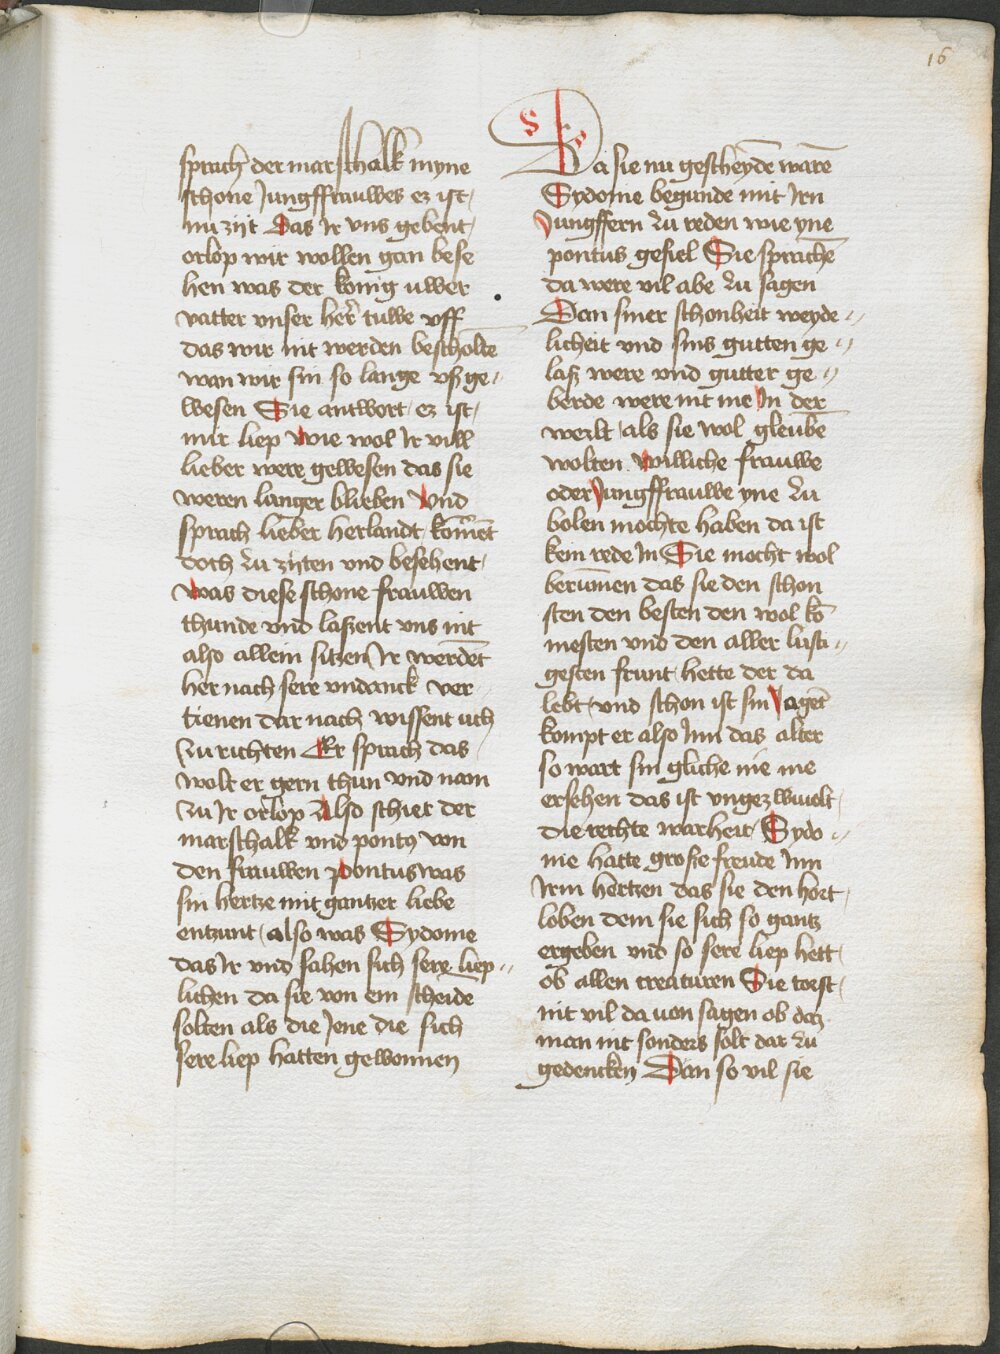 16
sprach der marschalk myne
schone Jungffrauwes ez ist
nu zijt Das Ir vns gebent
orlop wir wollen gan bese
hen was der konig uwer
vatter vnser her tuwe vff
das wir nit werden bescholtē
wan wir sin so lange vsz ge〃
wesen Sie antwort ez ist
mir liep Wie wol Ir vill
lieber were gewesen das sie
weren langer blieben Vnd
sprach lieber herlandt kom̄ēt
doch zu zijten vnd besehent
Was diese schone frauwen
thunde vnd laszent vns nit
also allein sitzen Ir werdēt
her nach sere vndanck ver
tienen dar nach wissent uch
zu richten Er sprach das
wolt er gern thun vnd nam
zu Ir orlop Also schiet der
marschalk vnd pontꝯ von
den frauwen Pontus was
sin hertze mit gantzer liebe
entzunt also was Sydonie
das Ir vnd sahen sich sere liep〃
lichen da sie von ein scheide
solten als die Jene die sich
sere liep hatten gewonnen
Da sie nu gescheydē warē
Sydonie begunde mit Irn
Jungffern zu reden wie yne
pontus gefiel Sie sprachē
da were vil abe zu sagen
Dan siner schonheit weyde〃
licheit vnd sins gutten ge〃
lasz were vnd gutter ge〃
berde were nit me In der
werlt als sie wol gleubē
wolten Williche frauwe
oder Jungffrauwe yne zu
bolen mochte haben da ist
kein rede In Sie mocht wol
berūmen das sie den schon
sten den besten den wol kō
mesten vnd den aller lusti〃
gesten frunt hette der da
lebt vnd schon ist sin Jagēt
kompt er also Inn das alter
so wart sin gliche nie me
ersehen das ist vngezwiuelt
die rechte warheit Sydo〃
nie hatte grosze freude Inn
Irm hertzen das sie den hort
loben dem sie sich so gantz
ergeben vnd so sere liep hett
ob allen creaturen Sie torst
nit vil da uon sagen ob daz
man nit sonders solt dar zu
gedencken Dan so vil sie